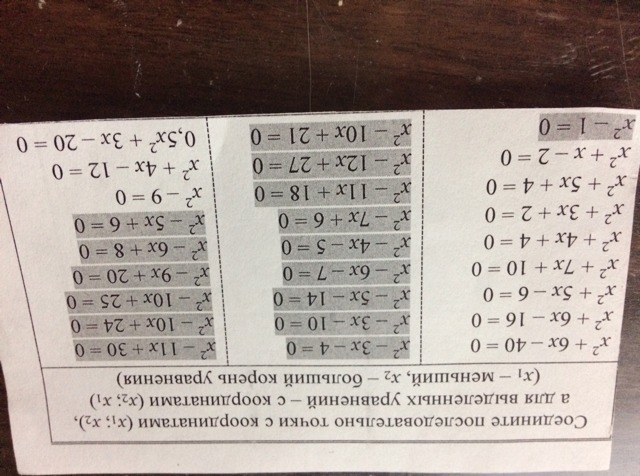 Соедините последовательно точки с координатами (x₁; x₂),
а для выделенных уравнений – с координатами (x₂; x₁)
(x₁ – меньший, x₂ – больший корень уравнения)
x² + 6x – 40 = 0
x² + 6x – 16 = 0
x² + 5x – 6 = 0
x² + 7x + 10 = 0
x² + 4x + 4 = 0
x² + 3x + 2 = 0
x² + 5x + 4 = 0
x² + x – 2 = 0
x² – 1 = 0
x² – 3x – 4 = 0
x² – 3x – 10 = 0
x² – 5x – 14 = 0
x² – 6x – 7 = 0
x² – 4x – 5 = 0
x² – 7x + 6 = 0
x² – 11x + 18 = 0
x² – 12x + 27 = 0
x² – 10x + 21 = 0
x² – 11x + 30 = 0
x² – 10x + 24 = 0
x² – 10x + 25 = 0
x² – 9x + 20 = 0
x² – 6x + 8 = 0
x² – 5x + 6 = 0
x² – 9 = 0
x² + 4x – 12 = 0
0,5x² + 3x – 20 = 0